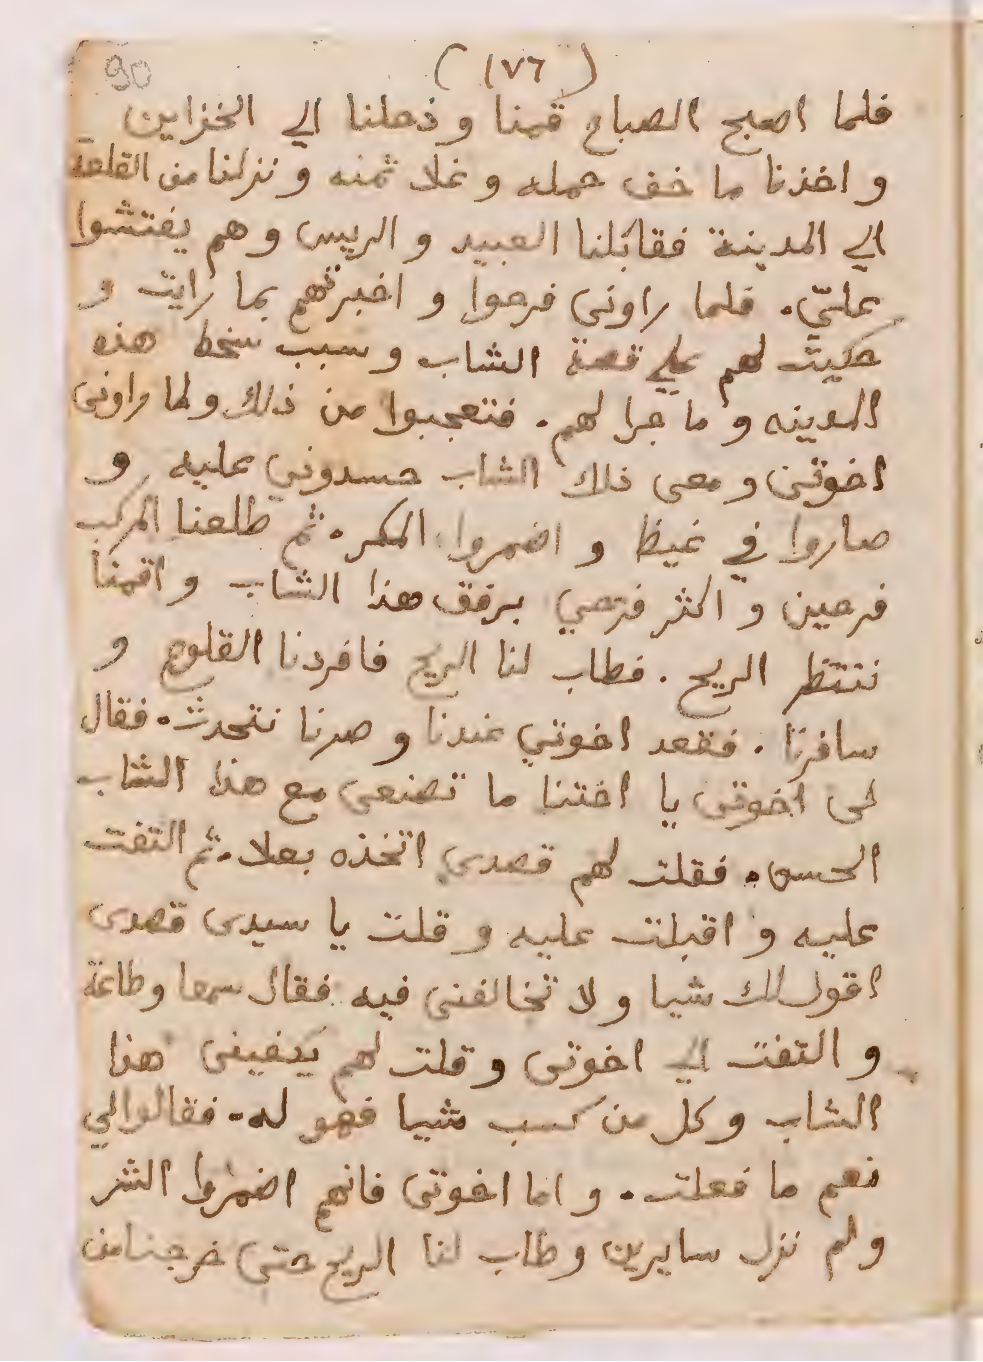 90
(١٧٦)
فلما اصبح الصباح قمنا و دخلنا الي الخزاين
و اخذنا ما خف حمله و غلا ثمنه و نزلنا من القلعة
الي المدينة فقابلنا العبيد و الريس و هم يفتشوا
عليّ. فلما راونى فرحوا و اخبرتهم بما رايت و
حكيت لهم علي قصة الشاب و سبب سخط هذه
المدينه و ما جرا لهم. فتعجبوا من ذلك و لما راونى
اخوتى و معى ذلك الشاب حسدوني عليه و
صاروا في غيظ و اضمروا المكر. ثم طلعنا المركب
فرحين و اكثر فرحي برفق هذا الشاب و اقمنا
ننتظر الريح. فطاب لنا الريح فافردنا القلوع و
سافرنا. فقعد اخوتي عندنا و صرنا نتحدث. فقال
لى اخوتى يا اختنا ما تصنعى مع هذا الشاب
الحسن. فقلت لهم قصدى اتخذه بعلا. ثم التفت
عليه و اقبلت عليه و قلت يا سيدى قصدى
اقول لك شيا و لا تخالفنى فيه فقال سمعا وطاعة
و التفت الي اخوتى و قلت لهم يكفينى هذا
الشاب و كل من كسب شيا فهو له. فقالوا لي
نعم ما فعلت. و اما اخوتى فانهم اضمروا الشر
و لم نزل سايرين و طاب لنا الريح حتى خرجنا من